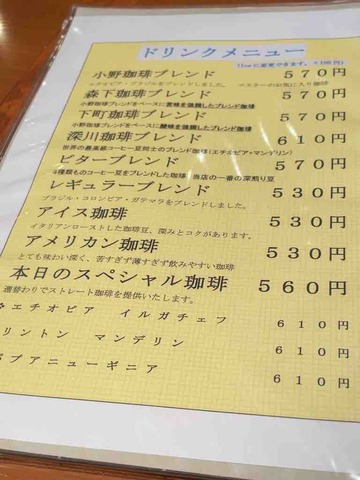 ドリンクメニュー
Iceに変更できます。+100円
小野珈琲ブレンド 570円
エチオピア・ブラジルをブレンドしました。 マスターのお気に入り珈琲
森下珈琲ブレンド 570円
小野珈琲ブレンドをベースに苦味を強調したブレンド珈琲
下町珈琲ブレンド 570円
小野珈琲ブレンドをベースに酸味を強調したブレンド珈琲
深川珈琲ブレンド 610円
世界の最高級コーヒー豆同士のブレンド珈琲(エチオピア・マンデリン)
ビターブレンド 570円
4種類ものコーヒー豆をブレンドした珈琲 当店の一番の深煎り豆
レギュラーブレンド 530円
ブラジル・コロンビア・ガテマラをブレンドしました。
アイス珈琲 530円
イタリアンローストした珈琲豆、深みとコクがあります。
アメリカン珈琲 530円
とても味わい深く、苦すぎず薄すぎず飲みやすい珈琲
本日のスペシャル珈琲 560円
週替わりでストレート珈琲を提供いたします。
エチオピア イルガチェフ 610円
リントン マンデリン 610円
パプアニューギニア 610円